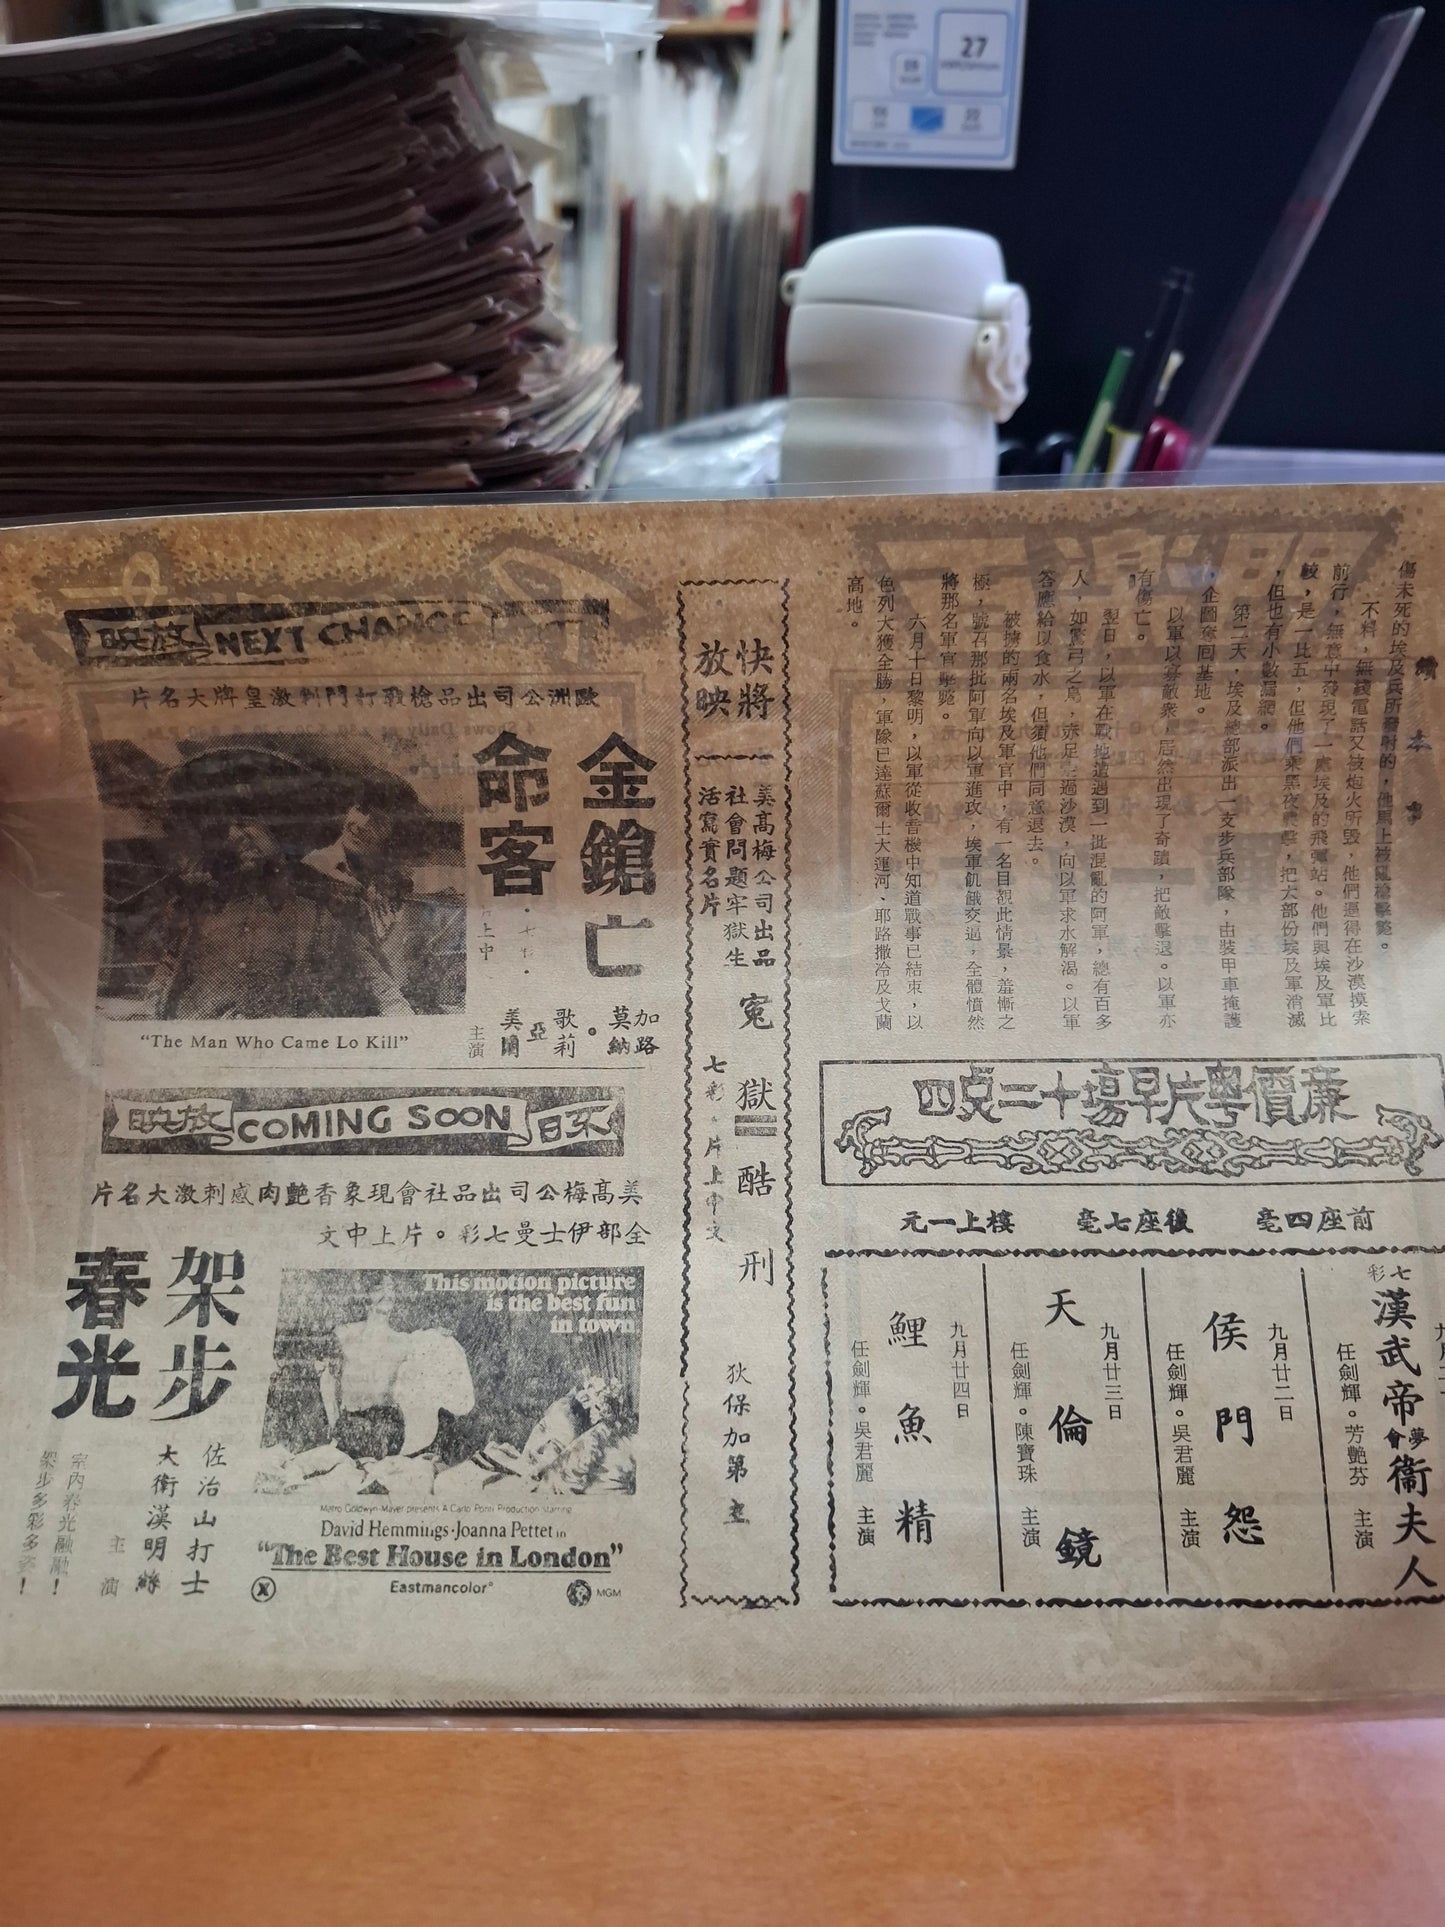 27
續本事
傷未死的埃及兵所發射的，他馬上被亂槍擊斃。
不料，無綫電話又被炮火所毀，他們逼得在沙漠摸索
前行，無意中發現了一處埃及的飛彈站。他們與埃及軍比
較，是一比五，但他們乘黑夜襲擊，把大部份埃及軍消滅
，但也有小數漏網。
第二天，埃及總部派出一支步兵部隊，由裝甲車掩護
，企圖奪回基地。
以軍以寡敵衆，居然出現了奇蹟，把敵擊退。以軍亦
有傷亡。
翌日，以軍在戰地遭遇到一批混亂的阿軍，總有百多
人，如驚弓之鳥，赤足走過沙漠，向以軍求水解渴。以軍
答應給以食水，但須他們同意退去。
被擄的兩名埃及軍官中，有一名目覩此情景，羞慚之
極，號召那批阿軍向以軍進攻，埃軍飢餓交逼，全體憤然
將那名軍官擊斃。
六月十日黎明，以軍從收音機中知道戰事已結束，以
色列大獲全勝，軍隊已達蘇彝士大運河、耶路撒冷及戈蘭
高地。
廉價粵片早塲十二點四
前座四毫
後座七毫
樓上一元
七彩
漢武帝夢會衞夫人
任劍輝。芳艷芬
主演
九月廿二日
侯門怨
任劍輝。吳君麗
主演
九月廿三日
天倫鏡
任劍輝。陳寶珠
主演
九月廿四日
鯉魚精
任劍輝。吳君麗
主演
快將放映
美高梅公司出品
社會問題牢獄生
活寫實名片
冤獄酷刑
七彩。片上中文
狄保加第主
NEXT CHANGE
放映
歐洲公司出品槍戰打鬥刺激皇牌大名片
金鎗亡命客
片上中
加路莫納。歌莉亞美爾
主演
“The Man Who Came Lo Kill”
來日
COMING SOON
放映
美高梅公司出品社會現象香艷肉感刺激大名片
全部伊士曼七彩。片上中文
架步春光
佐治山打士
大衛漢明絲
主演
室內春光融融！
架步多彩多姿！
This motion picture
is the best fun
in town
Metro Goldwyn-Mayer presents A Carlo Ponti Production starring
David Hemmings·Joanna Pettet in
“The Best House in London”
X
Eastmancolor
MGM